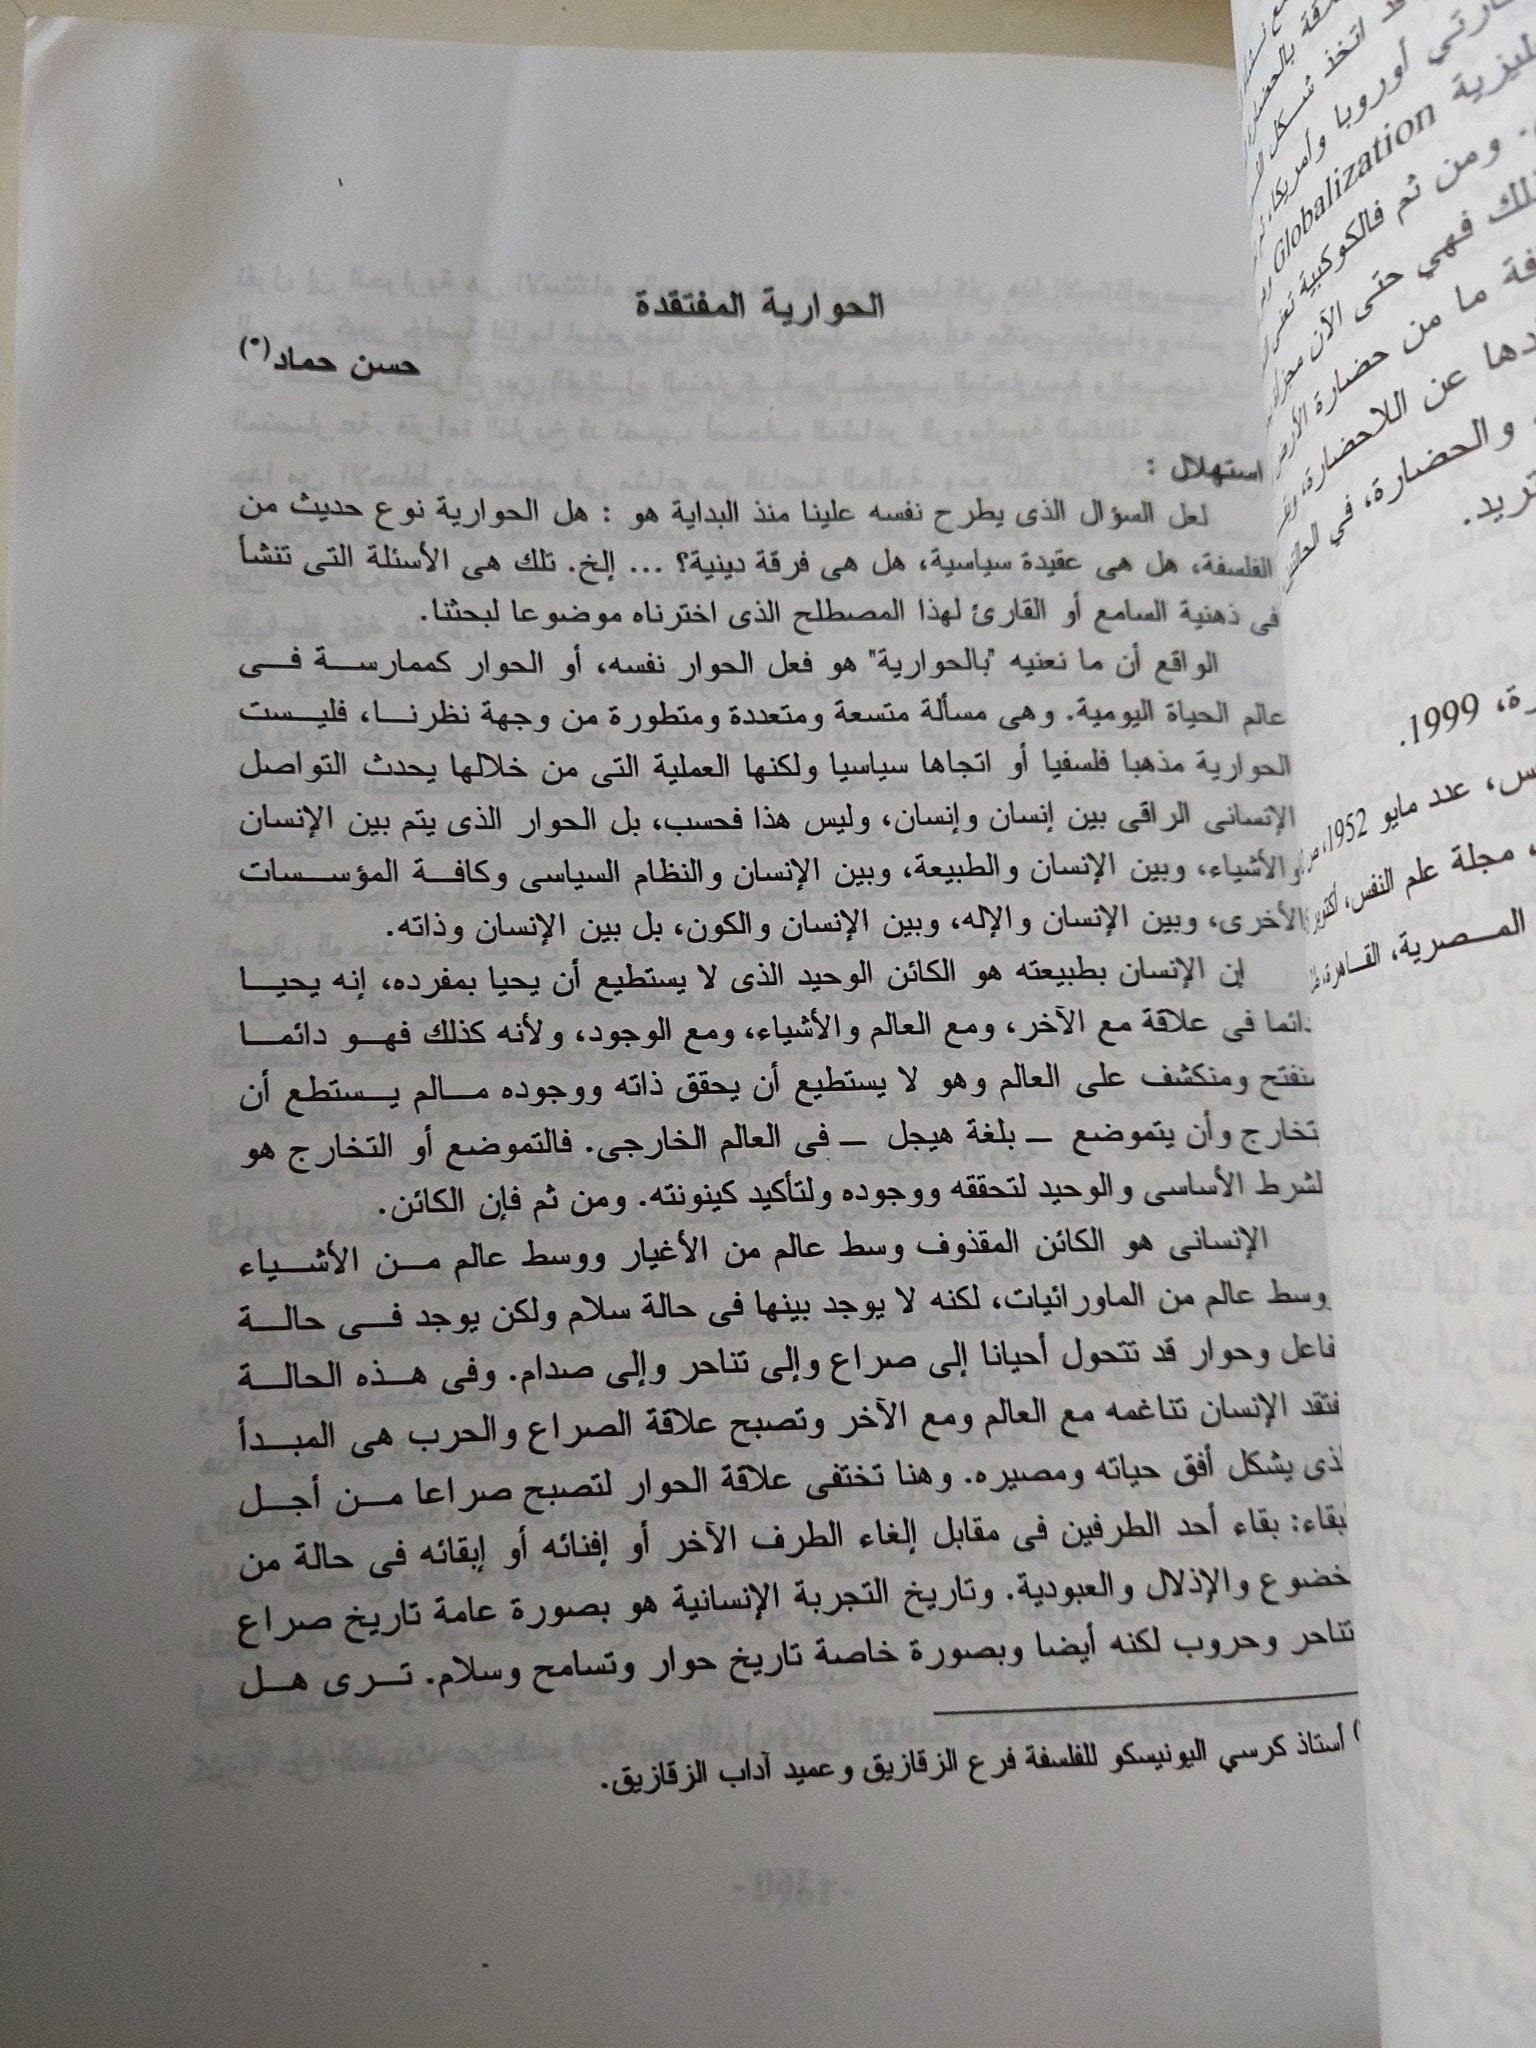 الحوارية المفتقدة
حسن حماد(*)
استهلال :
لعل السؤال الذى يطرح نفسه علينا منذ البداية هو : هل الحوارية نوع حديث من
الفلسفة، هل هى عقيدة سياسية، هل هى فرقة دينية؟ ... إلخ. تلك هى الأسئلة التى تنشأ
فى ذهنية السامع أو القارئ لهذا المصطلح الذى اخترناه موضوعا لبحثنا.
الواقع أن ما نعنيه "بالحوارية" هو فعل الحوار نفسه، أو الحوار كممارسة فى
عالم الحياة اليومية. وهى مسألة متسعة ومتعددة ومتطورة من وجهة نظرنا، فليست
الحوارية مذهبا فلسفيا أو اتجاها سياسيا ولكنها العملية التى من خلالها يحدث التواصل
الإنسانى الراقى بين إنسان وإنسان، وليس هذا فحسب، بل الحوار الذى يتم بين الإنسان
والأشياء، وبين الإنسان والطبيعة، وبين الإنسان والنظام السياسى وكافة المؤسسات
الأخرى، وبين الإنسان والإله، وبين الإنسان والكون، بل بين الإنسان وذاته.
إن الإنسان بطبيعته هو الكائن الوحيد الذى لا يستطيع أن يحيا بمفرده، إنه يحيا
دائما فى علاقة مع الآخر، ومع العالم والأشياء، ومع الوجود، ولأنه كذلك فهو دائما
منفتح ومنكشف على العالم وهو لا يستطيع أن يحقق ذاته ووجوده مالم يستطع أن
تخارج وأن يتموضع – بلغة هيجل – فى العالم الخارجى. فالتموضع أو التخارج هو
لشرط الأساسى والوحيد لتحققه ووجوده ولتأكيد كينونته. ومن ثم فإن الكائن.
الإنسانى هو الكائن المقذوف وسط عالم من الأغيار ووسط عالم من الأشياء
وسط عالم من الماورائيات، لكنه لا يوجد بينها فى حالة سلام ولكن يوجد فى حالة
فاعل وحوار قد تتحول أحيانا إلى صراع وإلى تناحر وإلى صدام. وفى هذه الحالة
فتقد الإنسان تناغمه مع العالم ومع الآخر وتصبح علاقة الصراع والحرب هى المبدأ
لذى يشكل أفق حياته ومصيره. وهنا تختفى علاقة الحوار لتصبح صراعا من أجل
لبقاء: بقاء أحد الطرفين فى مقابل إلغاء الطرف الآخر أو إفنائه أو إبقائه فى حالة من
خضوع والإذلال والعبودية. وتاريخ التجربة الإنسانية هو بصورة عامة تاريخ صراع
تناحر وحروب لكنه أيضا وبصورة خاصة تاريخ حوار وتسامح وسلام. ترى هل
) أستاذ كرسي اليونيسكو للفلسفة فرع الزقازيق وعميد آداب الزقازيق.
اتخذ شكل
أوروبا وأمريكا،
Globalization
. ومن ثم فالكوكبية
فهي حتى الآن
ما من حضارة
عن اللاحضارة،
والحضارة، في
تريد.
1999.
عدد مايو 1952،
، مجلة علم النفس، أكتوبر
المصرية، القاهرة،